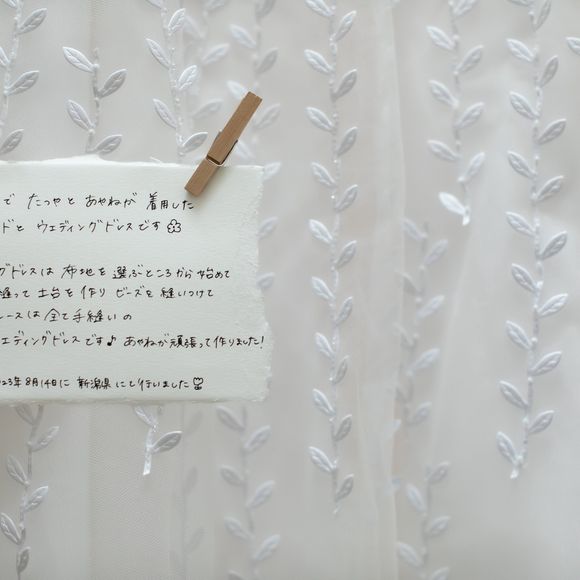 で たつやと あやねが 着用した
ドと ウエディングドレスです
グドレスは 布地を 選ぶところから始めて
縫って 土台を 作り ビーズを 縫いつけて
レースは 全て手縫いの
エディングドレスです♪ あやねが頑張って作りました!
23年8月14日に 新潟県 にて行いました